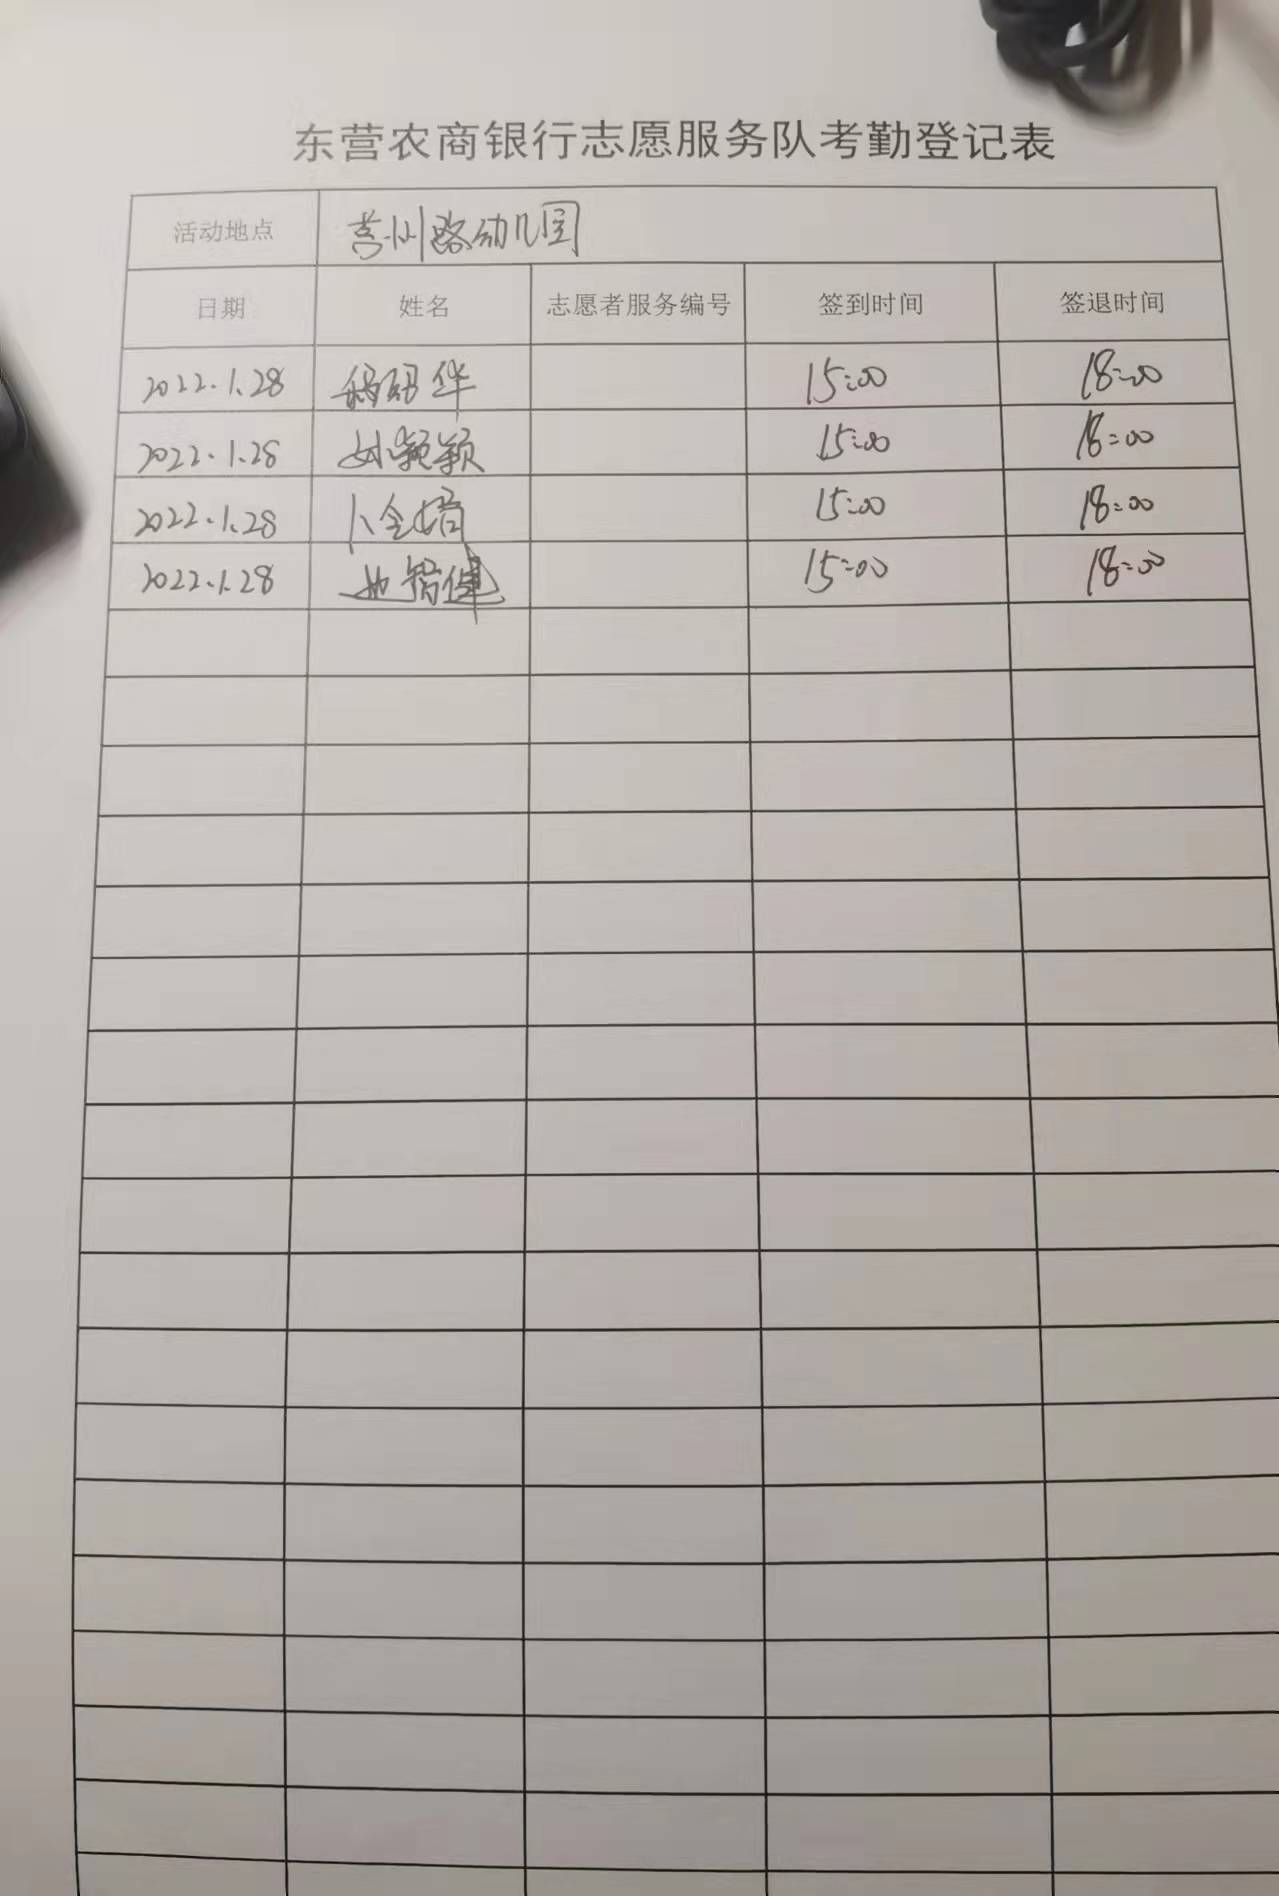 东营农商银行志愿服务队考勤登记表
活动地点 莒州路幼儿园
日期 姓名 志愿者服务编号 签到时间 签退时间
2022.1.28 华 15:00 18:00
2022.1.28 颖 15:00 18:00
2022.1.28 15:00 18:00
2022.1.28 智健 15:00 18:00